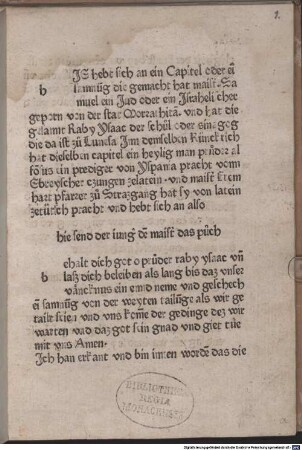 2.
b IS hebt sich an ein Capitel oder eī
samnūg die gemacht hat maist. Sa
muel ein Jud oder ein Israheli cher
geporn von der stat Morrathitā. vnd hat die
gesannt Raby ysaac der schůl oder sinagog
die da ist zů Inn demselben Künckrich
hat dieselben capitel ein heylig man průder al
fōsus ein prediger von yspania pracht vom
Ebreyscher czungen zelatein. vnd maist.
hart pfarrer zů Strazgang hat sy von latein
zetütsch pracht vnd hebt sich an also
hie send der iung dē maist das půch
b ehalt dich got o průder raby ysaac vn̄
laß dich beleiben als lang bis daz vnser
vāncknus ein emd neme vnd geschech
eī samnūg von der weyten tailūge als wir ge
tailt seien vnd vns kome der gedinge dez wir
warten vnd daz got sein gnad vnd gier tüe
mit vns Amen.
Ich han erkant vnd bin innen wordē das die
BIBLIOTHECA
REGIA
MONACENSIS